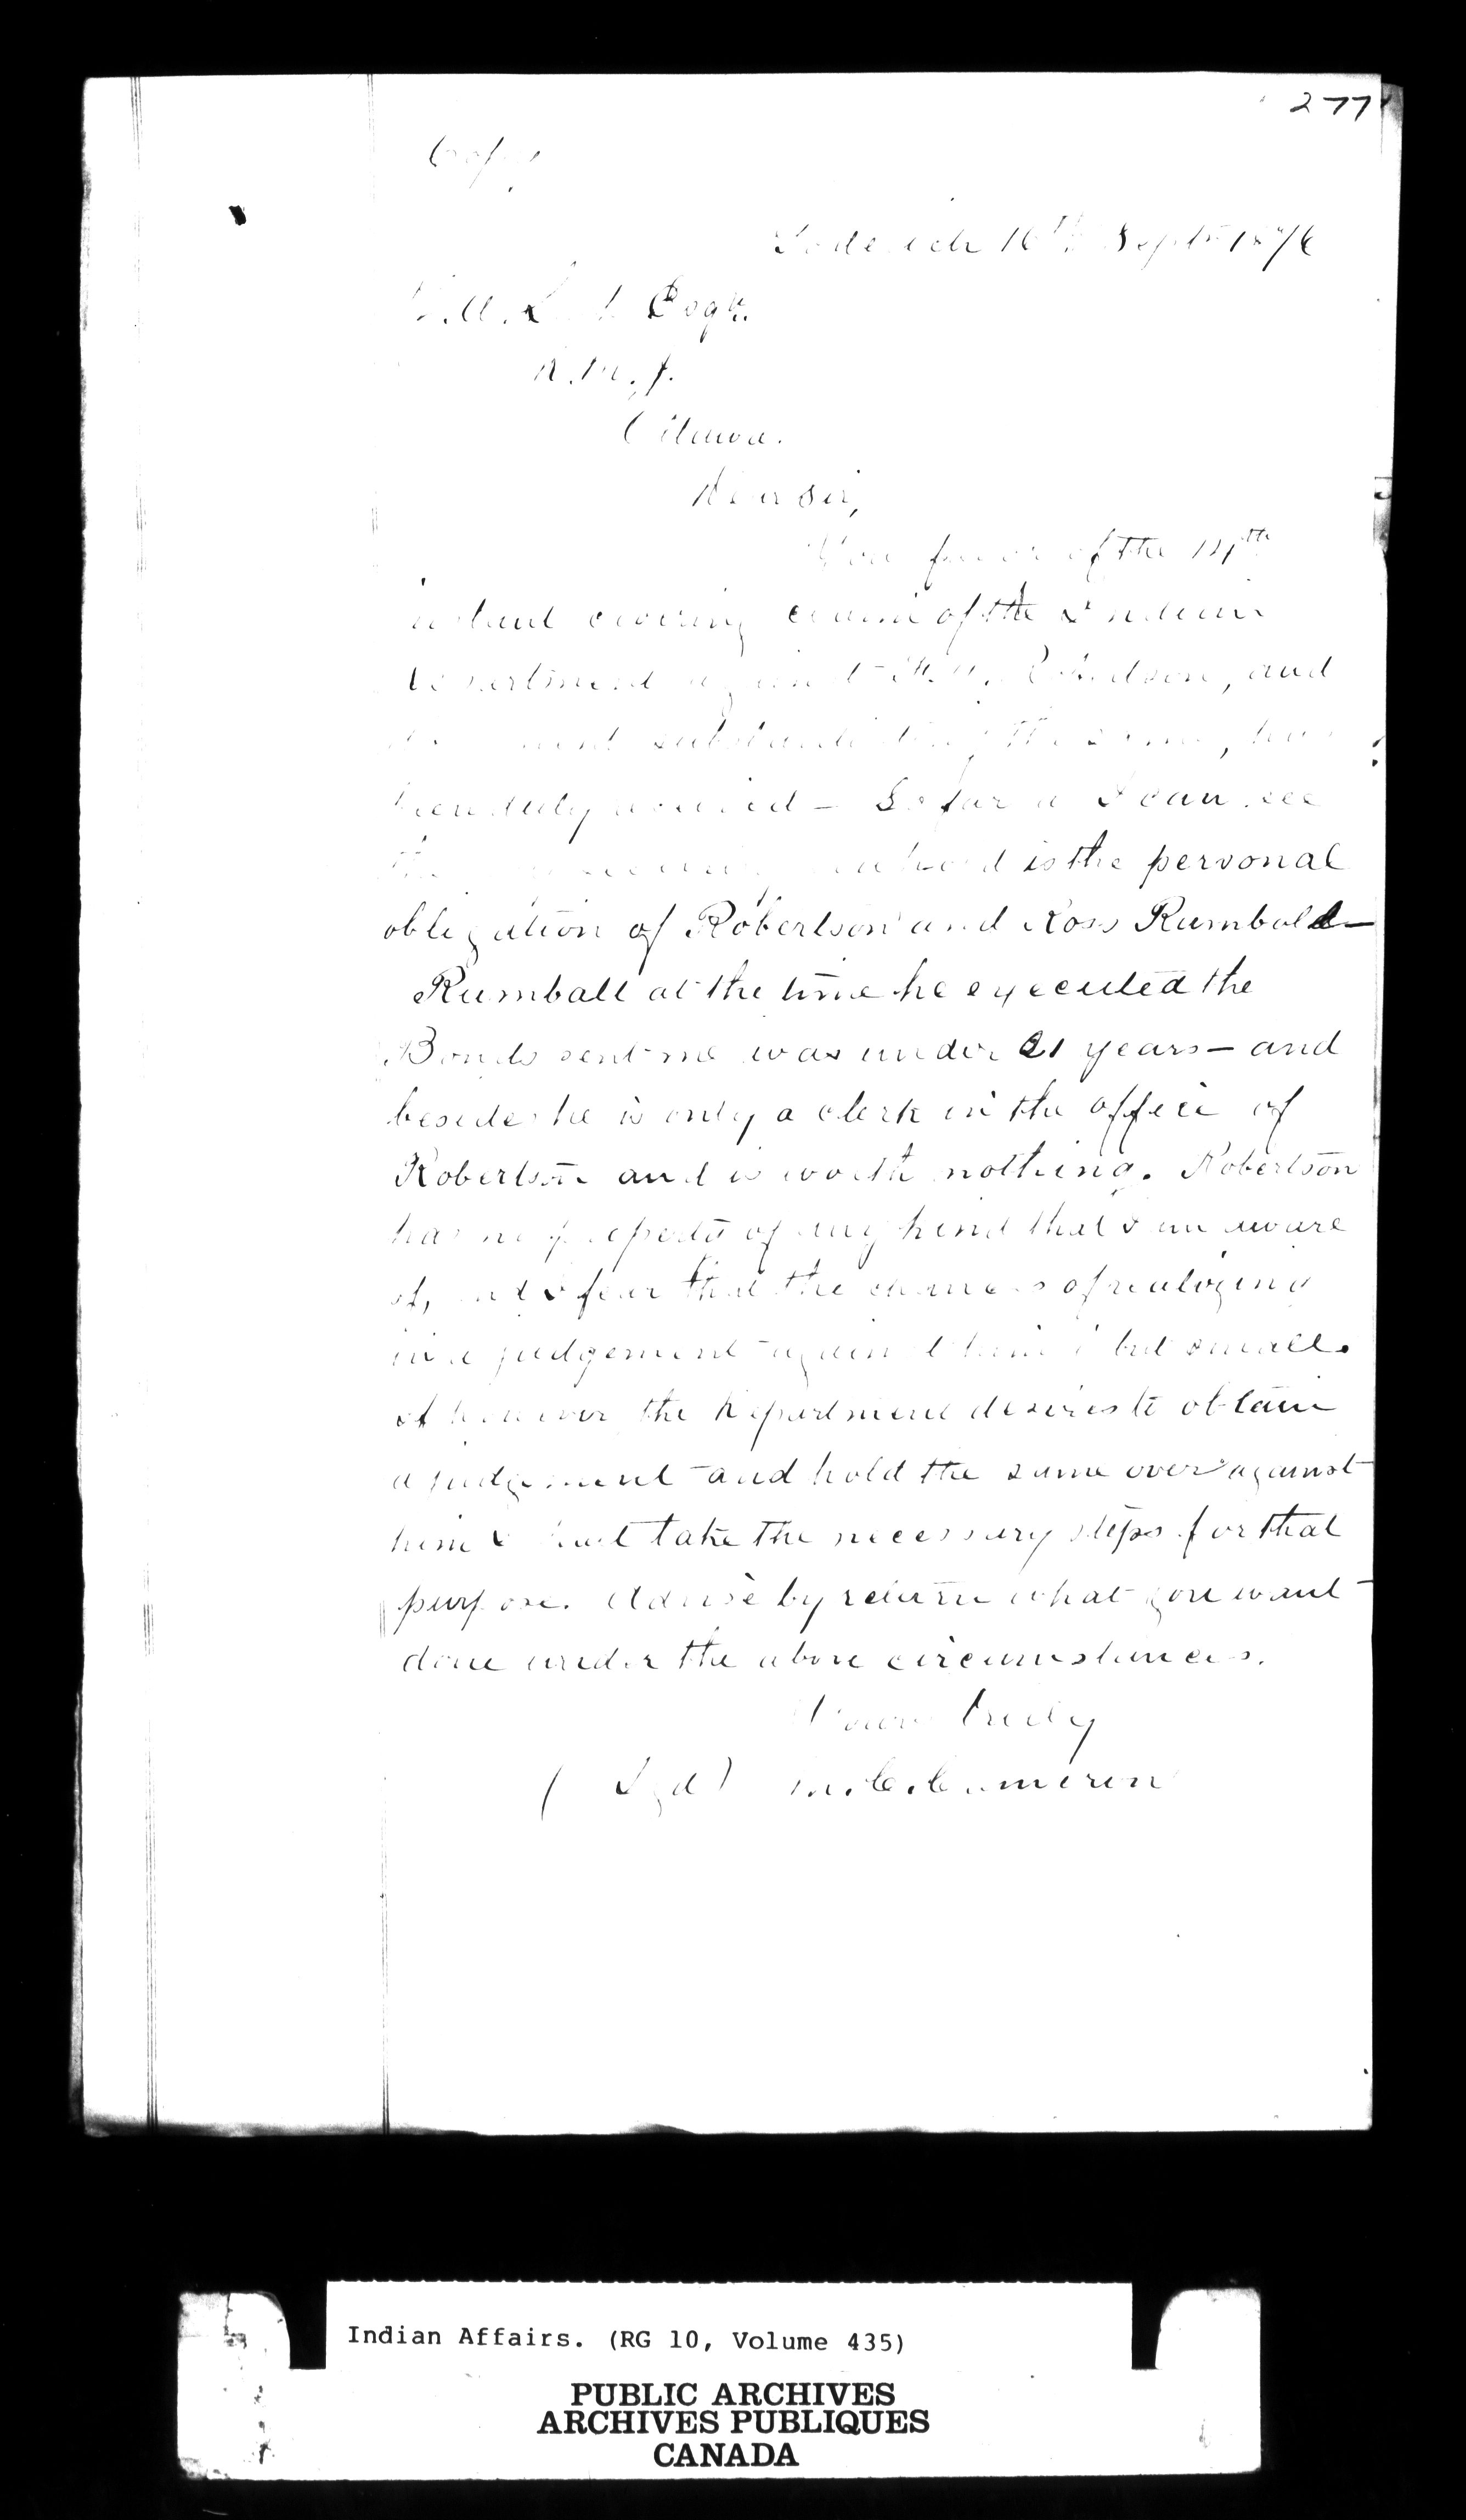 277
Copy
Goderich 16th Sept 1876
Esqr.
Ottawa.
Dear Sir,
Your favor of the 14th
instant covering claim of the Indian
Department against Robertson, and
substantiating the same, have
been duly received - So far as I can see
the is the personal
obligation of Robertson and Ross Rumbald—
Rumball at the time he executed the
Bonds sent me was under 21 years — and
besides he is only a clerk in the office of
Robertson and is worth nothing. Robertson
has no property of any kind that I am aware
of, and I fear that the chances of realizing
in a judgement against him is but small.
If however the Department desires to obtain
a judgement and hold the same over against
him I must take the necessary steps for that
purpose. Advise by return what you want
done under the above circumstances.
Yours truly
(Sgd) M.C. Cameron
Indian Affairs. (RG 10, Volume 435)
PUBLIC ARCHIVES
ARCHIVES PUBLIQUES
CANADA